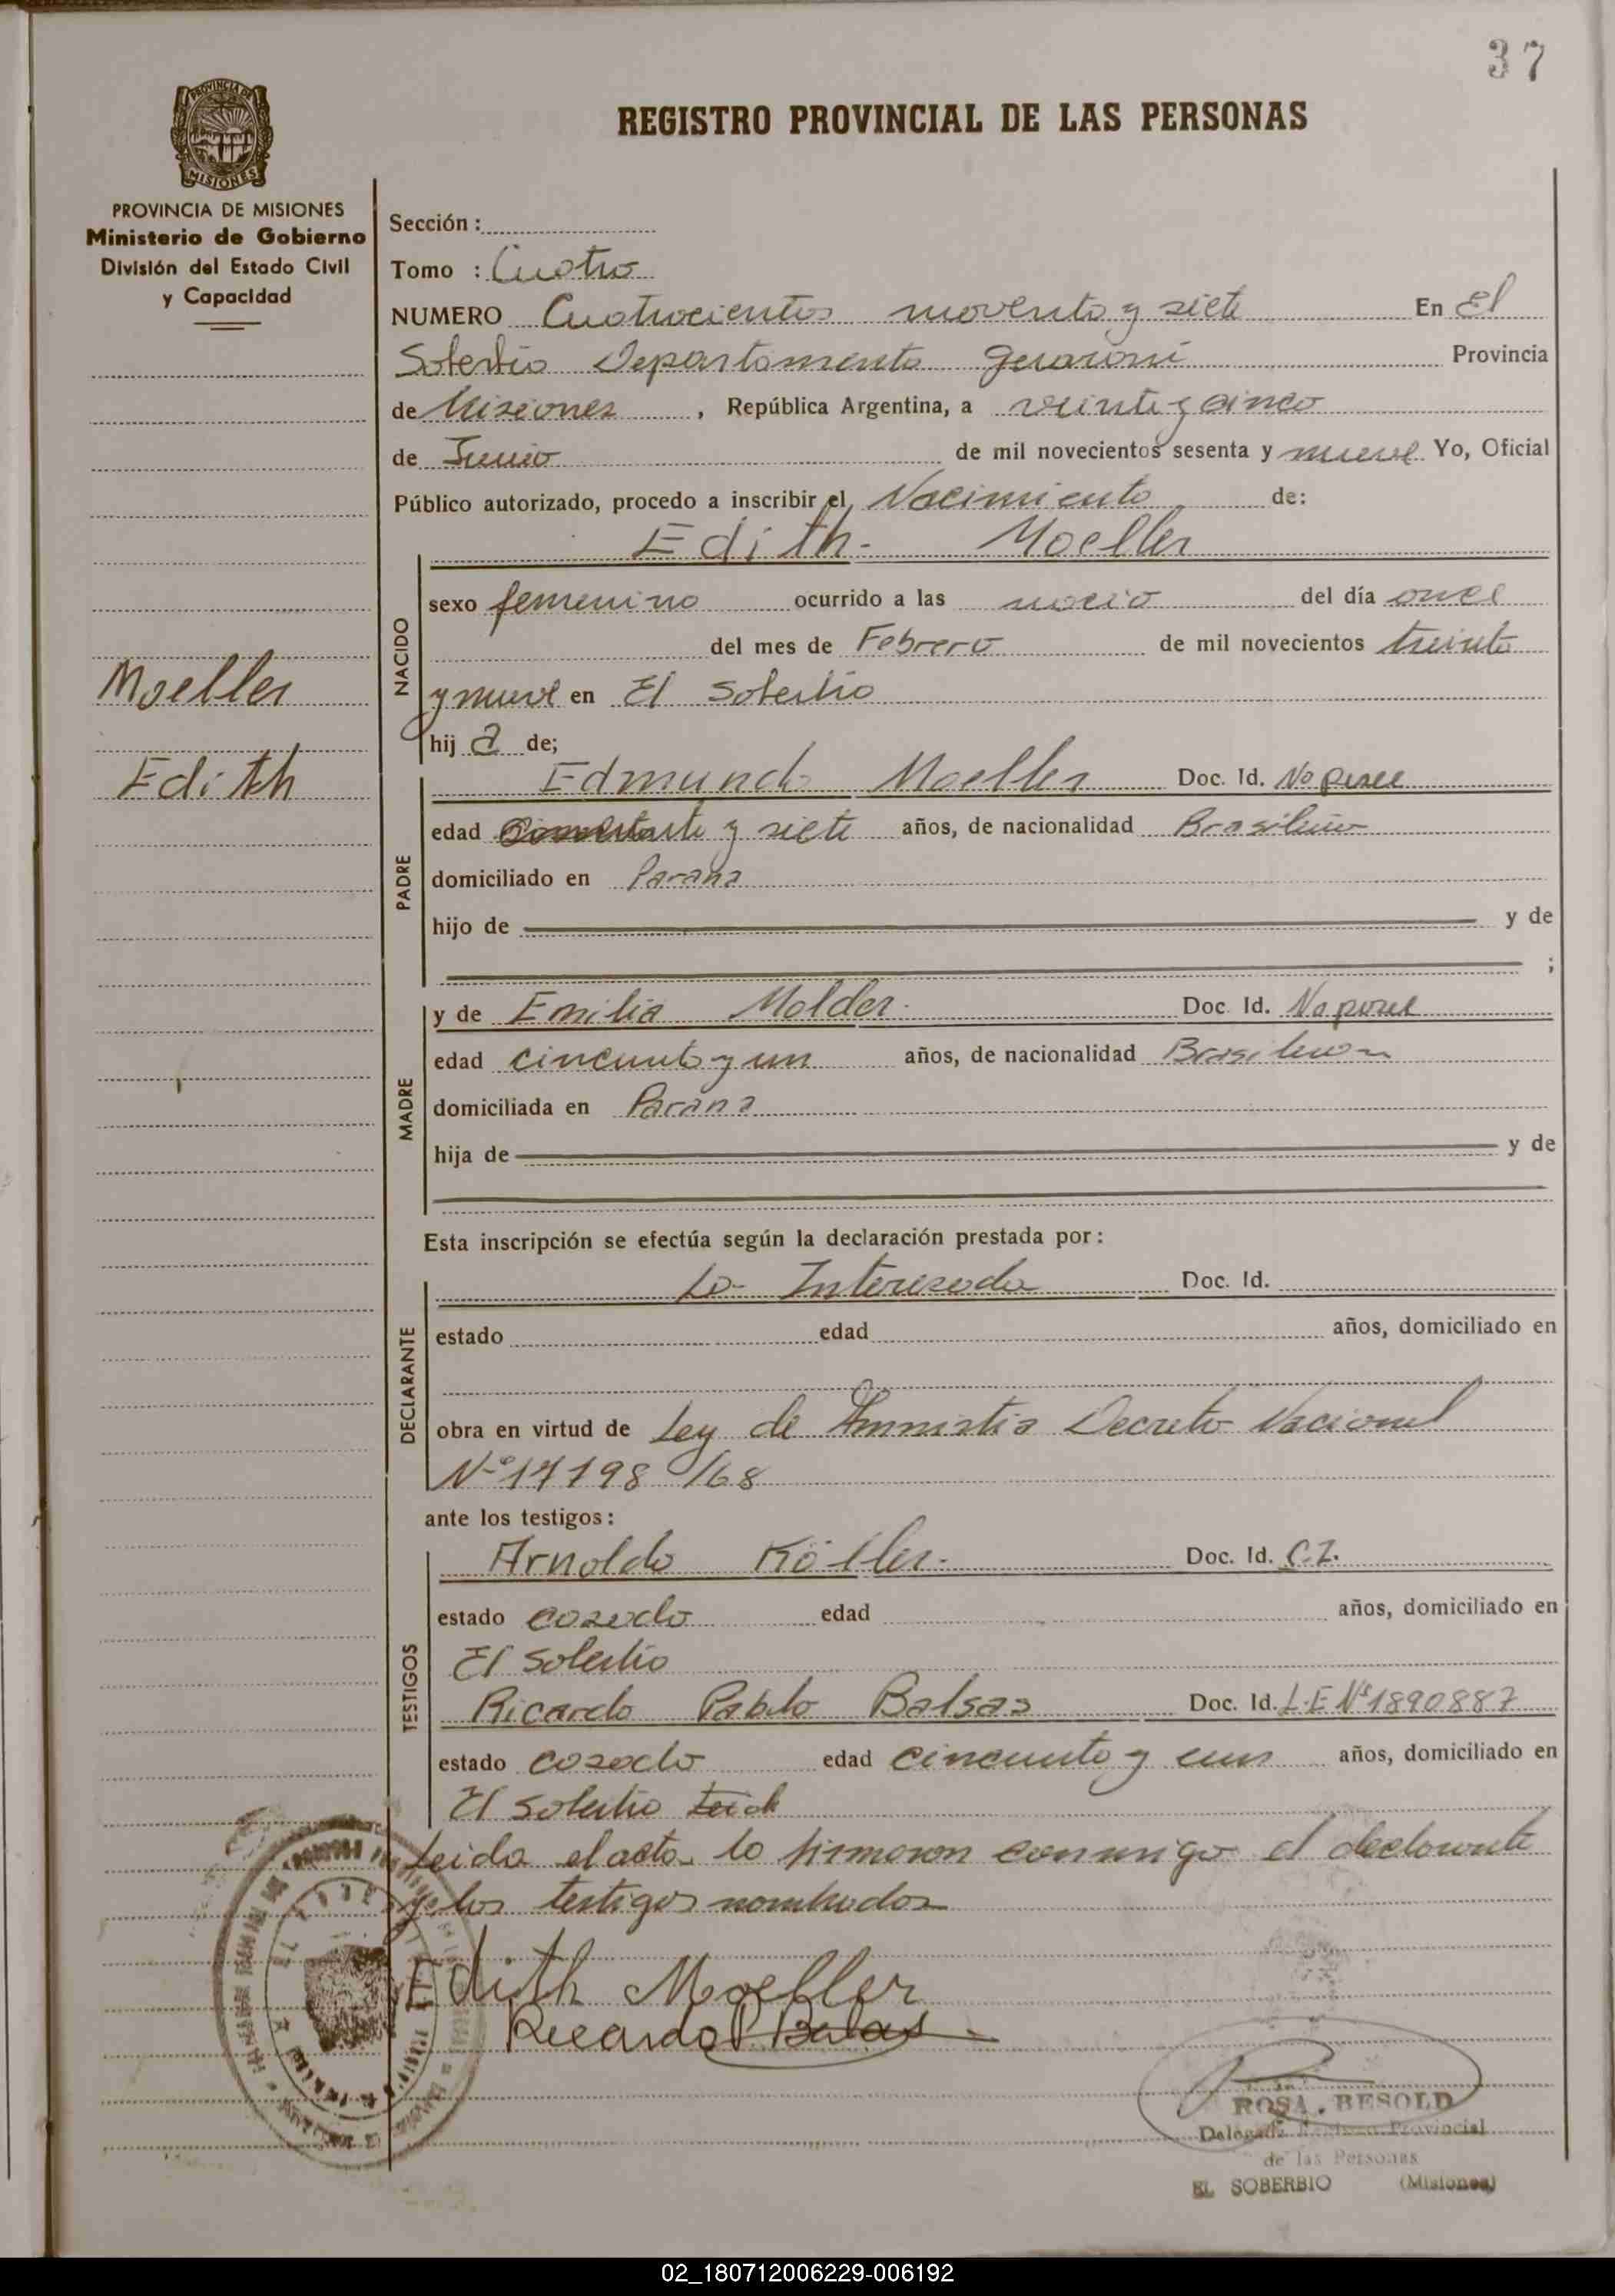 37
REGISTRO PROVINCIAL DE LAS PERSONAS
PROVINCIA DE MISIONES
MISIONES
PROVINCIA DE MISIONES
Ministerio de Gobierno
División del Estado Civil
y Capacidad
Moeller
Edith
Sección :
Tomo : Cuatro
NUMERO Cuatrocientos noventa y siete En El
Soberbio Departamento Guaraní Provincia
de Misiones , República Argentina, a veinte y cinco
de Junio de mil novecientos sesenta y nueve Yo, Oficial
Público autorizado, procedo a inscribir el Nacimiento de:
Edith Moeller
NACIDO
sexo femenino ocurrido a las del día once
del mes de Febrero de mil novecientos treinta
y nueve en El Soberbio
hij a de;
PADRE
Edmundo Moeller Doc. Id. No posee
edad y siete años, de nacionalidad Brasileño
domiciliado en Parana
hijo de y de
;
MADRE
y de Emilia Molder Doc. Id. No posee
edad cincuenta y un años, de nacionalidad Brasilera
domiciliada en Parana
hija de y de
Esta inscripción se efectúa según la declaración prestada por :
DECLARANTE
La Interesada Doc. Id.
estado edad años, domiciliado en
obra en virtud de Ley de Amnistia Decreto Nacional
Nº 17198/68
ante los testigos :
TESTIGOS
Arnoldo Köller Doc. Id. C.I.
estado casado edad años, domiciliado en
El Soberbio
Ricardo Pablo Balsas Doc. Id. L.E Nº 1890887
estado casado edad cincuenta y un años, domiciliado en
El Soberbio
Leida el acta la firmaron conmigo el declarante
y los testigos nombrados
Edith Moeller
Ricardo P. Balsas
ROSA . BESOLD
Delegada Registro Provincial
de las Personas
EL SOBERBIO (Misiones)
02_180712006229-006192